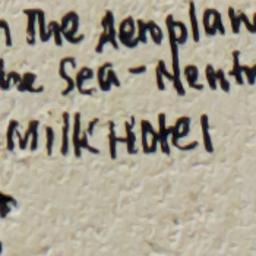 n The Aeroplan
he Sea-Neutr
Milk Hotel